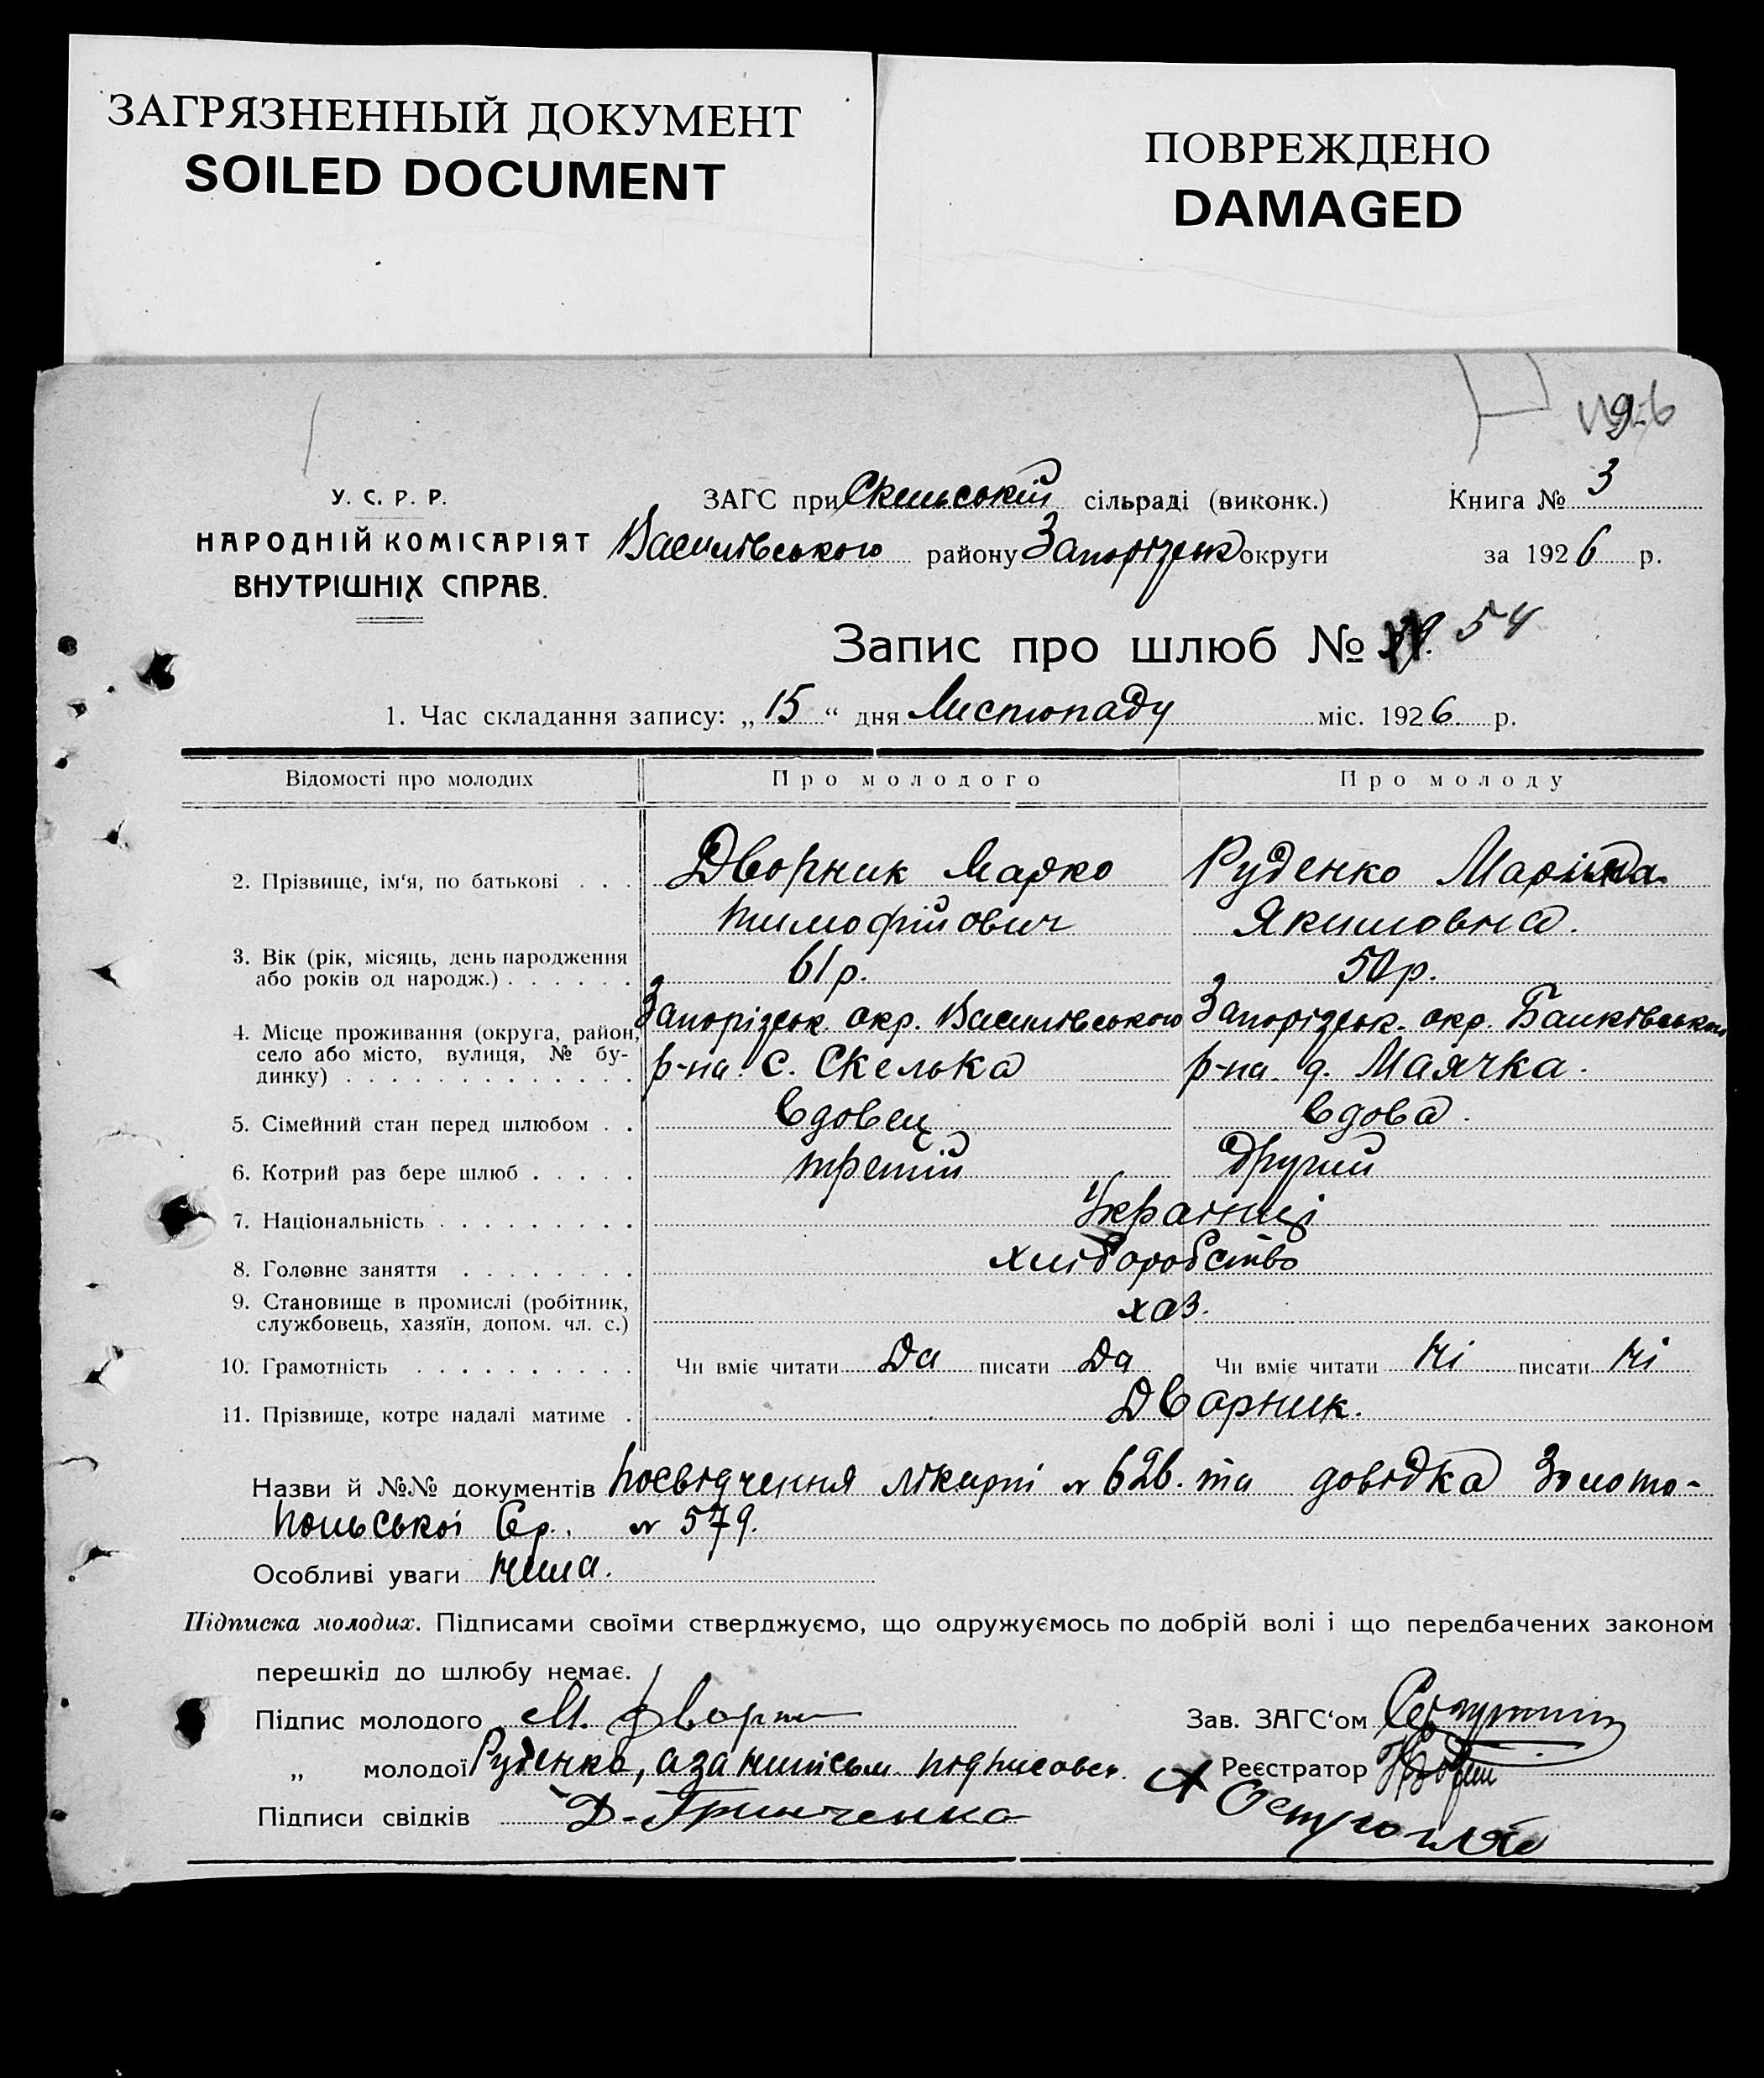 ЗАГРЯЗНЕННЫЙ ДОКУМЕНТ
SOILED DOCUMENT
ПОВРЕЖДЕНО
DAMAGED
У. С. Р. Р.
НАРОДНІЙ КОМІСАРІЯТ
ВНУТРІШНІХ СПРАВ.
ЗАГС при Скельській сільраді (виконк.)
Книга № 3
Василівського району Запорізськ округи
за 1926 р.
Запис про шлюб № 54
1. Час складання запису: „15“ дня Листопаду міс. 1926. р.
Відомості про молодих Про молодого Про молоду
2. Прізвище, ім‘я, по батькові . . . Дворник Марко Руденко
Тимофійович Якимовна.
3. Вік (рік, місяць, день народження або років од народж.) . . . . . . 61р. 50р.
4. Місце проживання (округа, район, Запорізськ окр. Василівського Запорізськ. окр.
село або місто, вулиця, № бу- р-на с. Скелька р-на д. Маячка.
динку) . . . . . . . . . . . . .
5. Сімейний стан перед шлюбом . . вдовец вдова.
6. Котрий раз бере шлюб . . . . . третій другий
7. Національність . . . . . . . . . Українці
8. Головне заняття . . . . . . . . хліборобство
9. Становище в промислі (робітник, хаз.
службовець, хазяїн, допом. чл. с.)
10. Грамотність . . . . . . . . . . Чи вміє читати Да писати Да Чи вміє читати Ні писати Ні
11. Прізвище, котре надалі матиме . Дворник.
Назви й №№ документів посвідчення лікарні № 626. та довідка Золото-
польської № 579.
Особливі уваги нема.
Підписка молодих. Підписами своїми стверджуємо, що одружуємось по добрій волі і що передбачених законом
перешкід до шлюбу немає.
Підпис молодого М. Дворник
Зав. ЗАГС‘ом
„ молодої Руденко, а за
Реєстратор
Підписи свідків Д. Гринченко